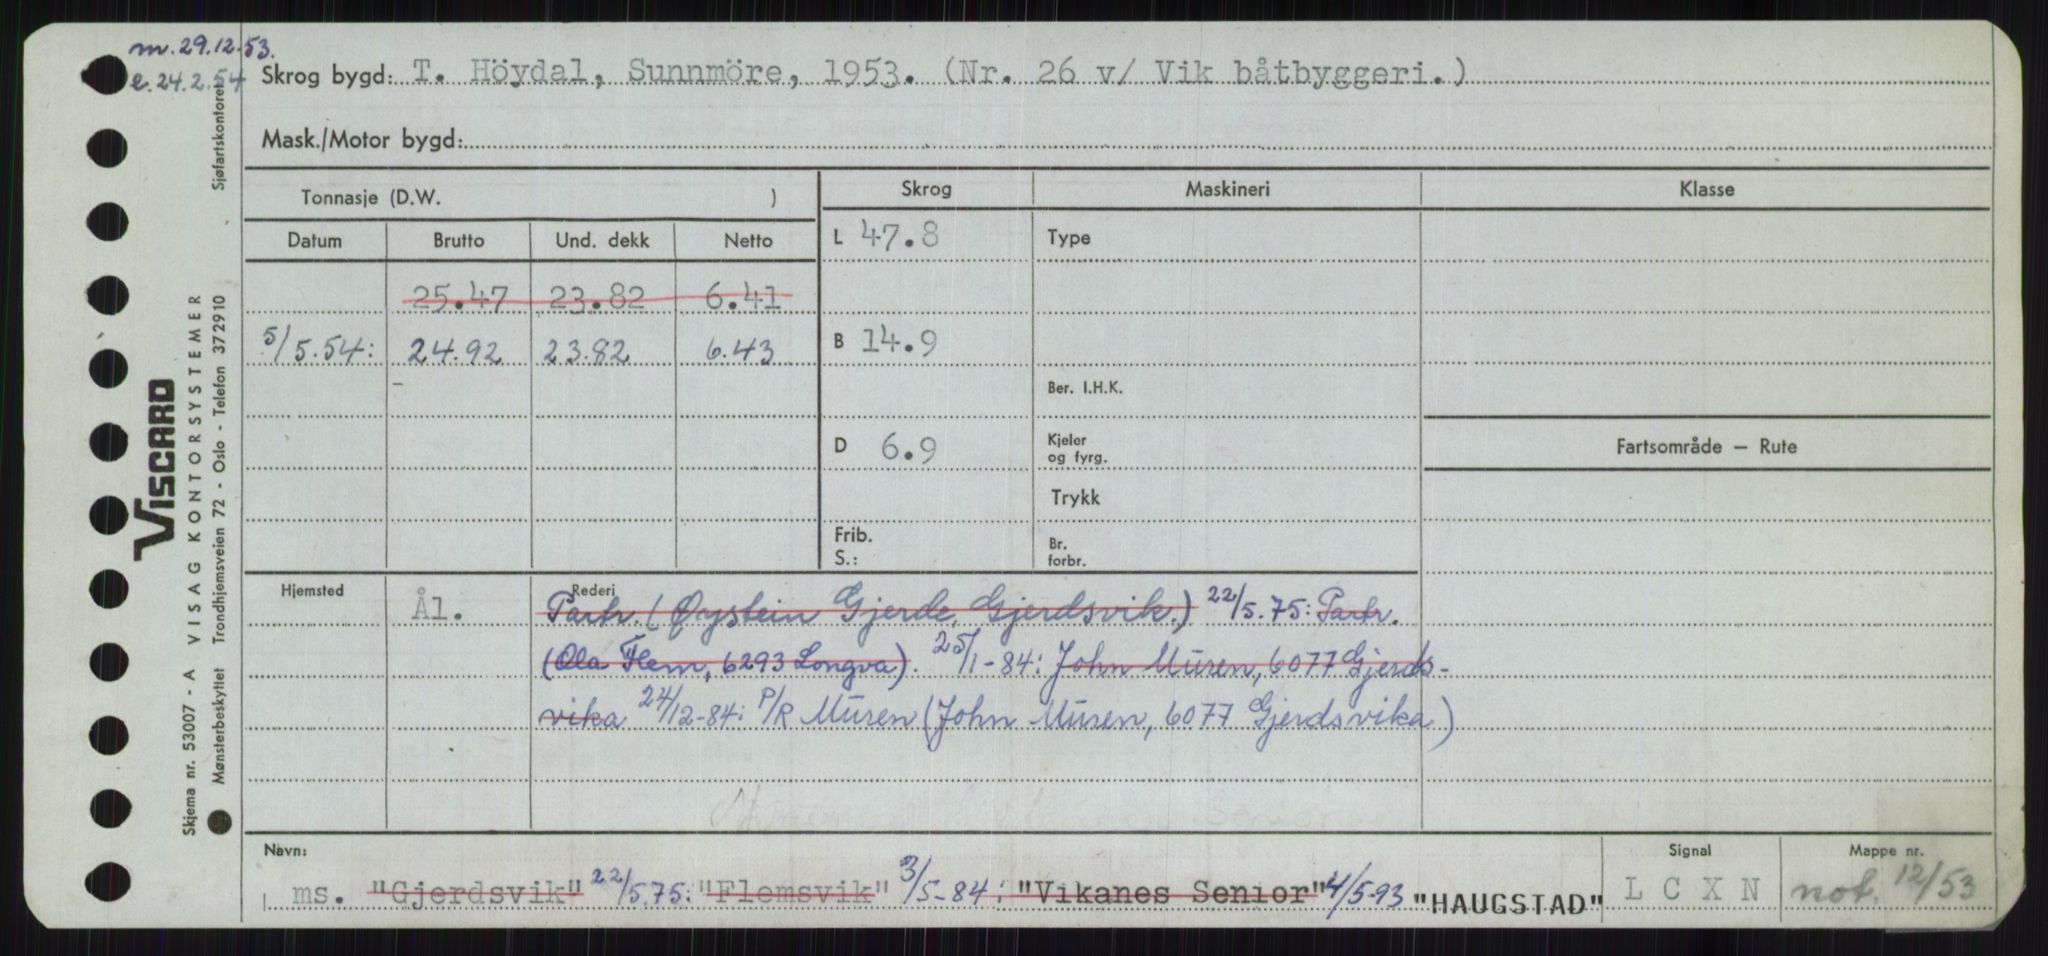 m. 29.12.53.
e. 24.2.54
Skrog bygd: T. Höydal, Sunnmöre, 1953. (Nr. 26 v/ Vik båtbyggeri.)
Mask./Motor bygd:
Tonnasje (D.W. )
Skrog Maskineri Klasse
Datum Brutto Und. dekk Netto
L 47.8 Type
25.47 23.82 6.41
5/5.54: 24.92 23.82 6.43
B 14.9
Ber. I.H.K.
D 6.9 Kjeler og fyrg.
Fartsområde — Rute
Trykk
Frib.
S.:
Br. forbr.
Hjemsted Ål. Rederi
Partr. (Øystein Gjerde, Gjerdsvik.) 22/5.75: Partr.
(Ola Flem, 6293 Longva). 25/1-84: John Muren, 6077 Gjerds-
vika 24/12-84: P/R Muren (John Muren, 6077 Gjerdsvika)
Navn: Signal Mappe nr.
ms. "Gjerdsvik" 22/5.75: "Flemsvik" 3/5-84: "Vikanes Senior" 4/5-93 "HAUGSTAD" L C X N not. 12/53
Sjøfartskontoret
VISCARD
VISAG KONTORSYSTEMER
Trondhjemsveien 72 - Oslo - Telefon 372910
Skjema nr. 53007 - A
Mønsterbeskyttet